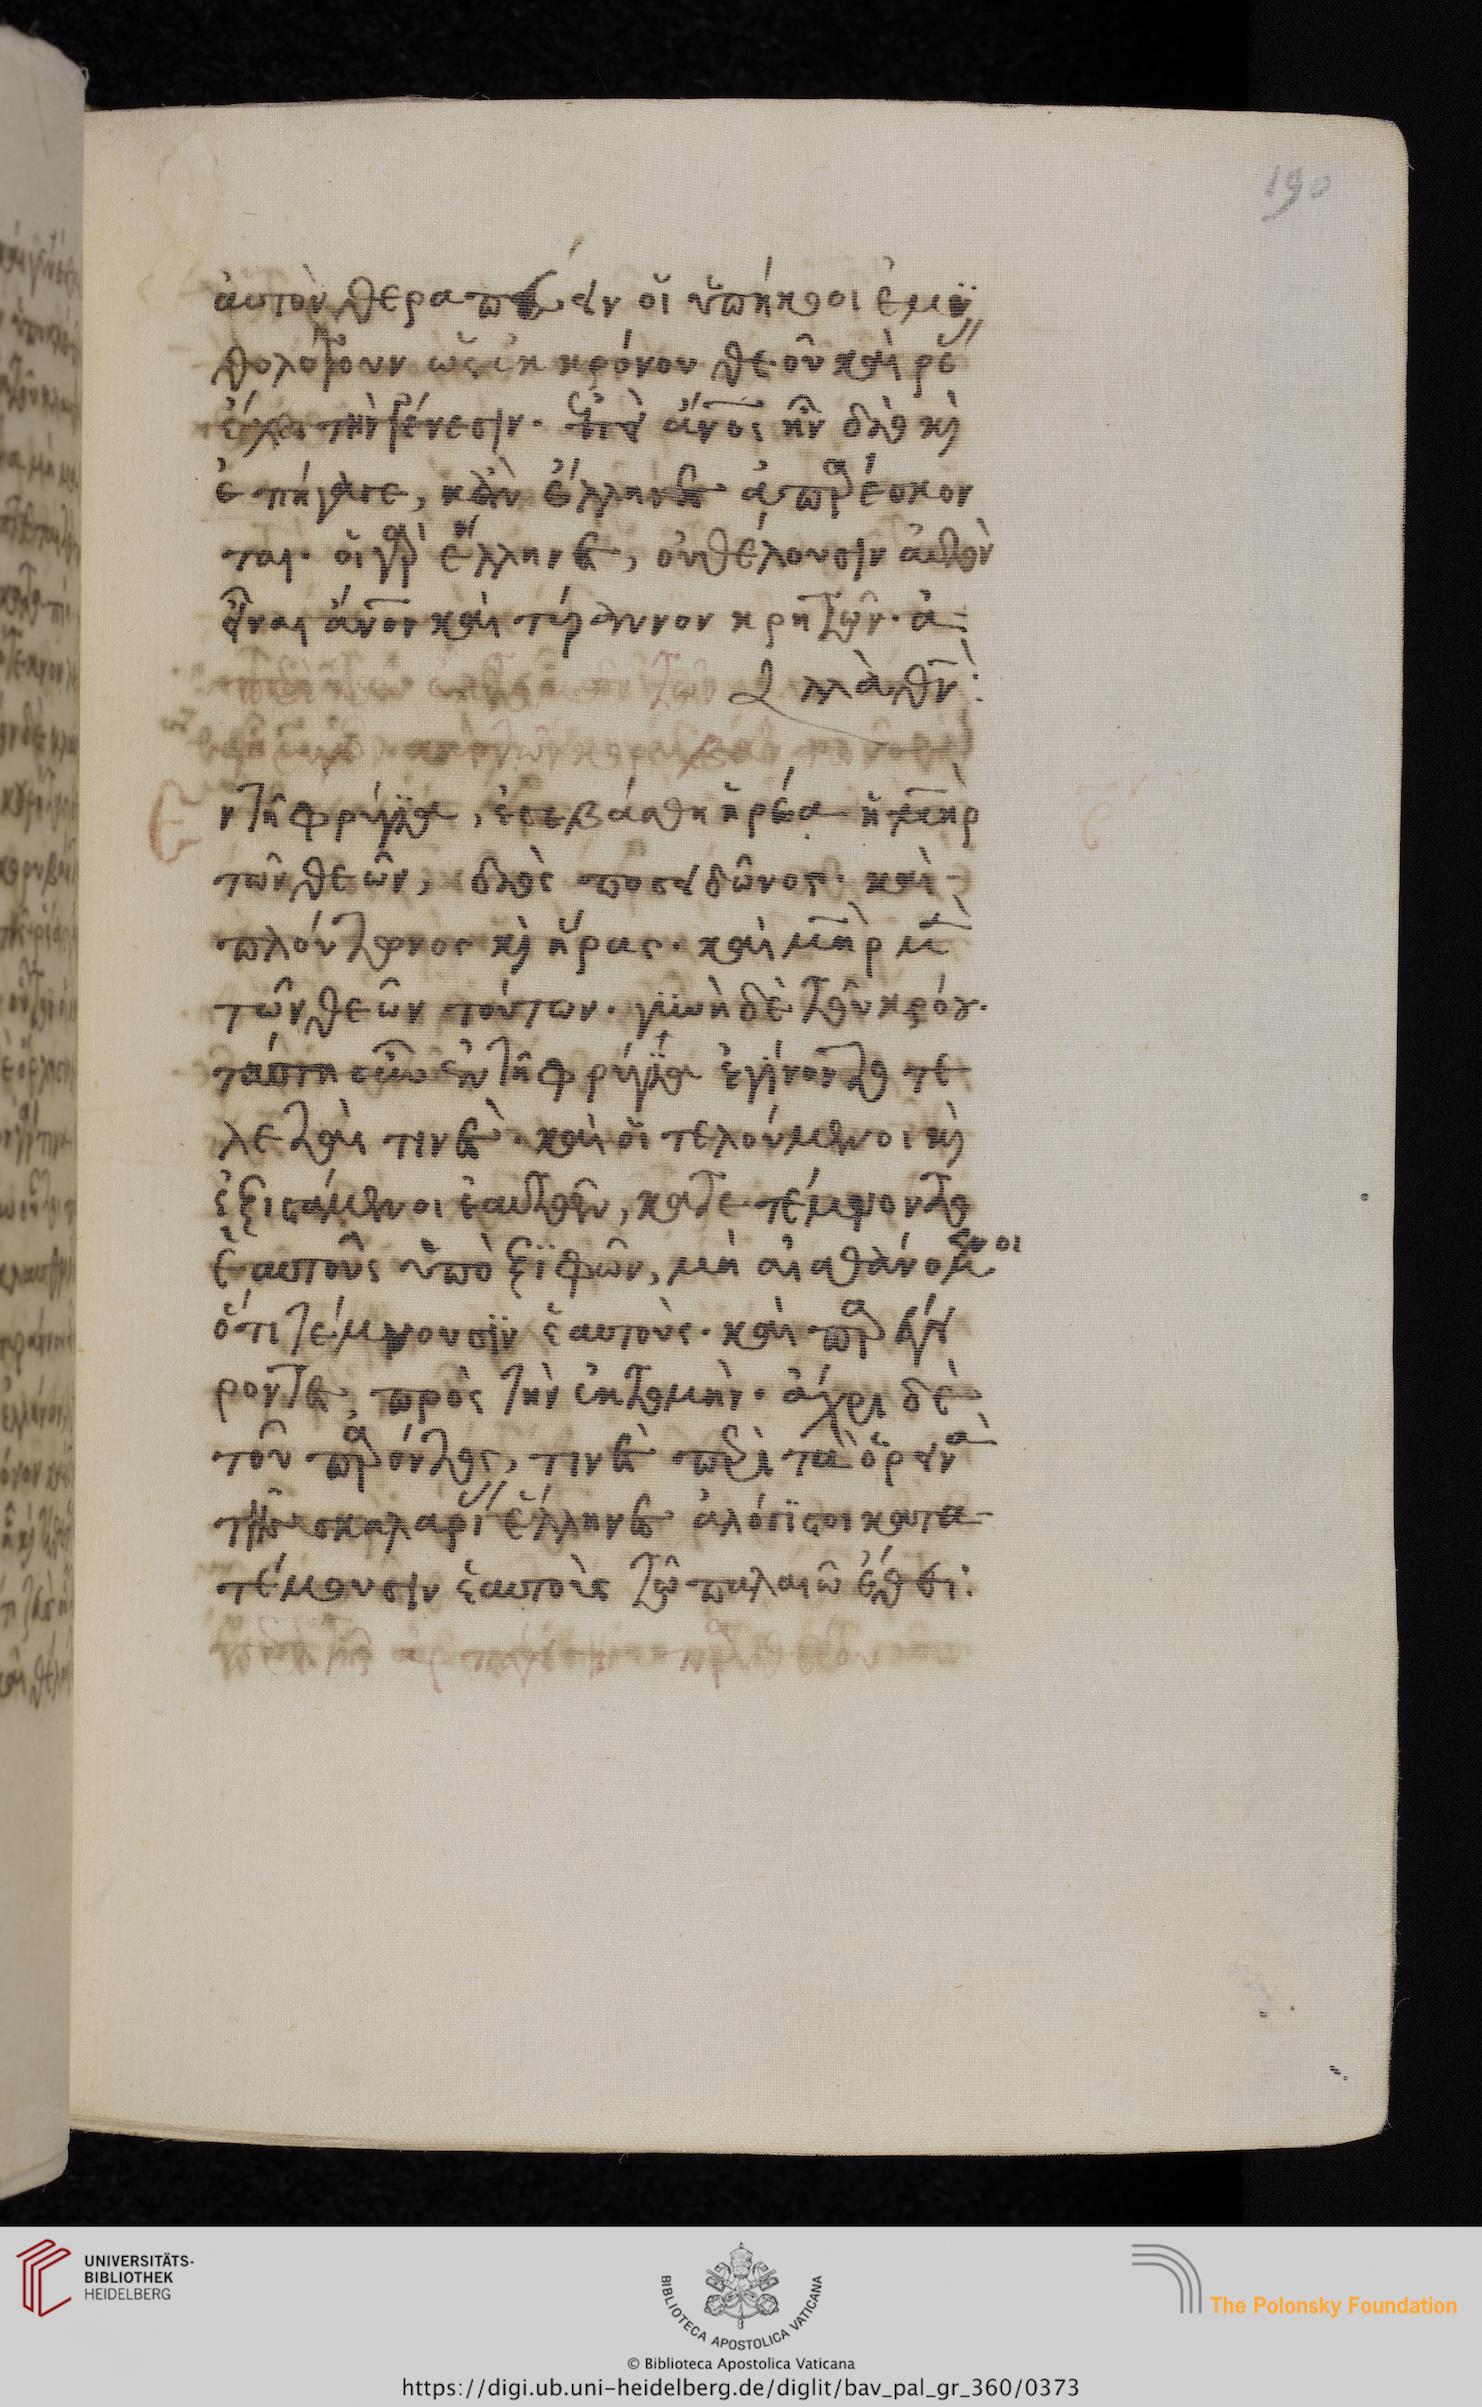 190
ἀυτὸν θεραπεύειν οἵ ὑπήκοοι ἐμυ
θολόγουν ὡς ἐκ κρόνου θεοῦ καὶ ρέ
ἔχει τὴν γένεσιν· ἄνος ἦν διὸ κὶ
ἑλληνες ἀπαρέσκον
ται· οἱ γὰρ ἕλληνες, οὐθέλουσιν ἀυτὸν
εἶναι ἄνον καὶ τύραννον κρητῶν· ἀ
θν:
Εν τῆ φρυγία, ἐσεβάσθη ἡ ρέα ἡ μηρ
τῶν θεῶν, διὸς ποσειδῶνος· καὶ
πλούτωνος κὶ ἥρας· καὶ μηρ μ
τῶν θεῶν τούτων· γυνὴ δὲ τοῦ κρόν·
ταύτη οὖν ἐν τῆ φρυγία ἐγίνοντο τε
λεταὶ τινὲς· καὶ οἵ τελούμενοι κὶ
ἐξιστάμενοι ἑαυτῶν, κατετέμνοντο
ἑαυτοὺς ὑπὸ ξϊφῶν, μὴ αἰσθανόμενοι
ὅτι τέμνουσϊν ἑαυτοὺς· καὶ παρεγεί
ροντες, πρὸς τὴν ἐκτομὴν· ἄχρι δὲ
τοῦ παρόντος, τινὲς περὶ τὰ ὄρεινὰ
τῆς καρί ἕλληνες κατα
τέμουσιν ἑαυτοὶς τῶ παλαιῶ ἔθει:
UNIVERSITÄTS-
BIBLIOTHEK
HEIDELBERG
BIBLIOTECA APOSTOLICA VATICANA
The Polonsky Foundation
© Biblioteca Apostolica Vaticana
https://digi.ub.uni-heidelberg.de/diglit/bav_pal_gr_360/0373